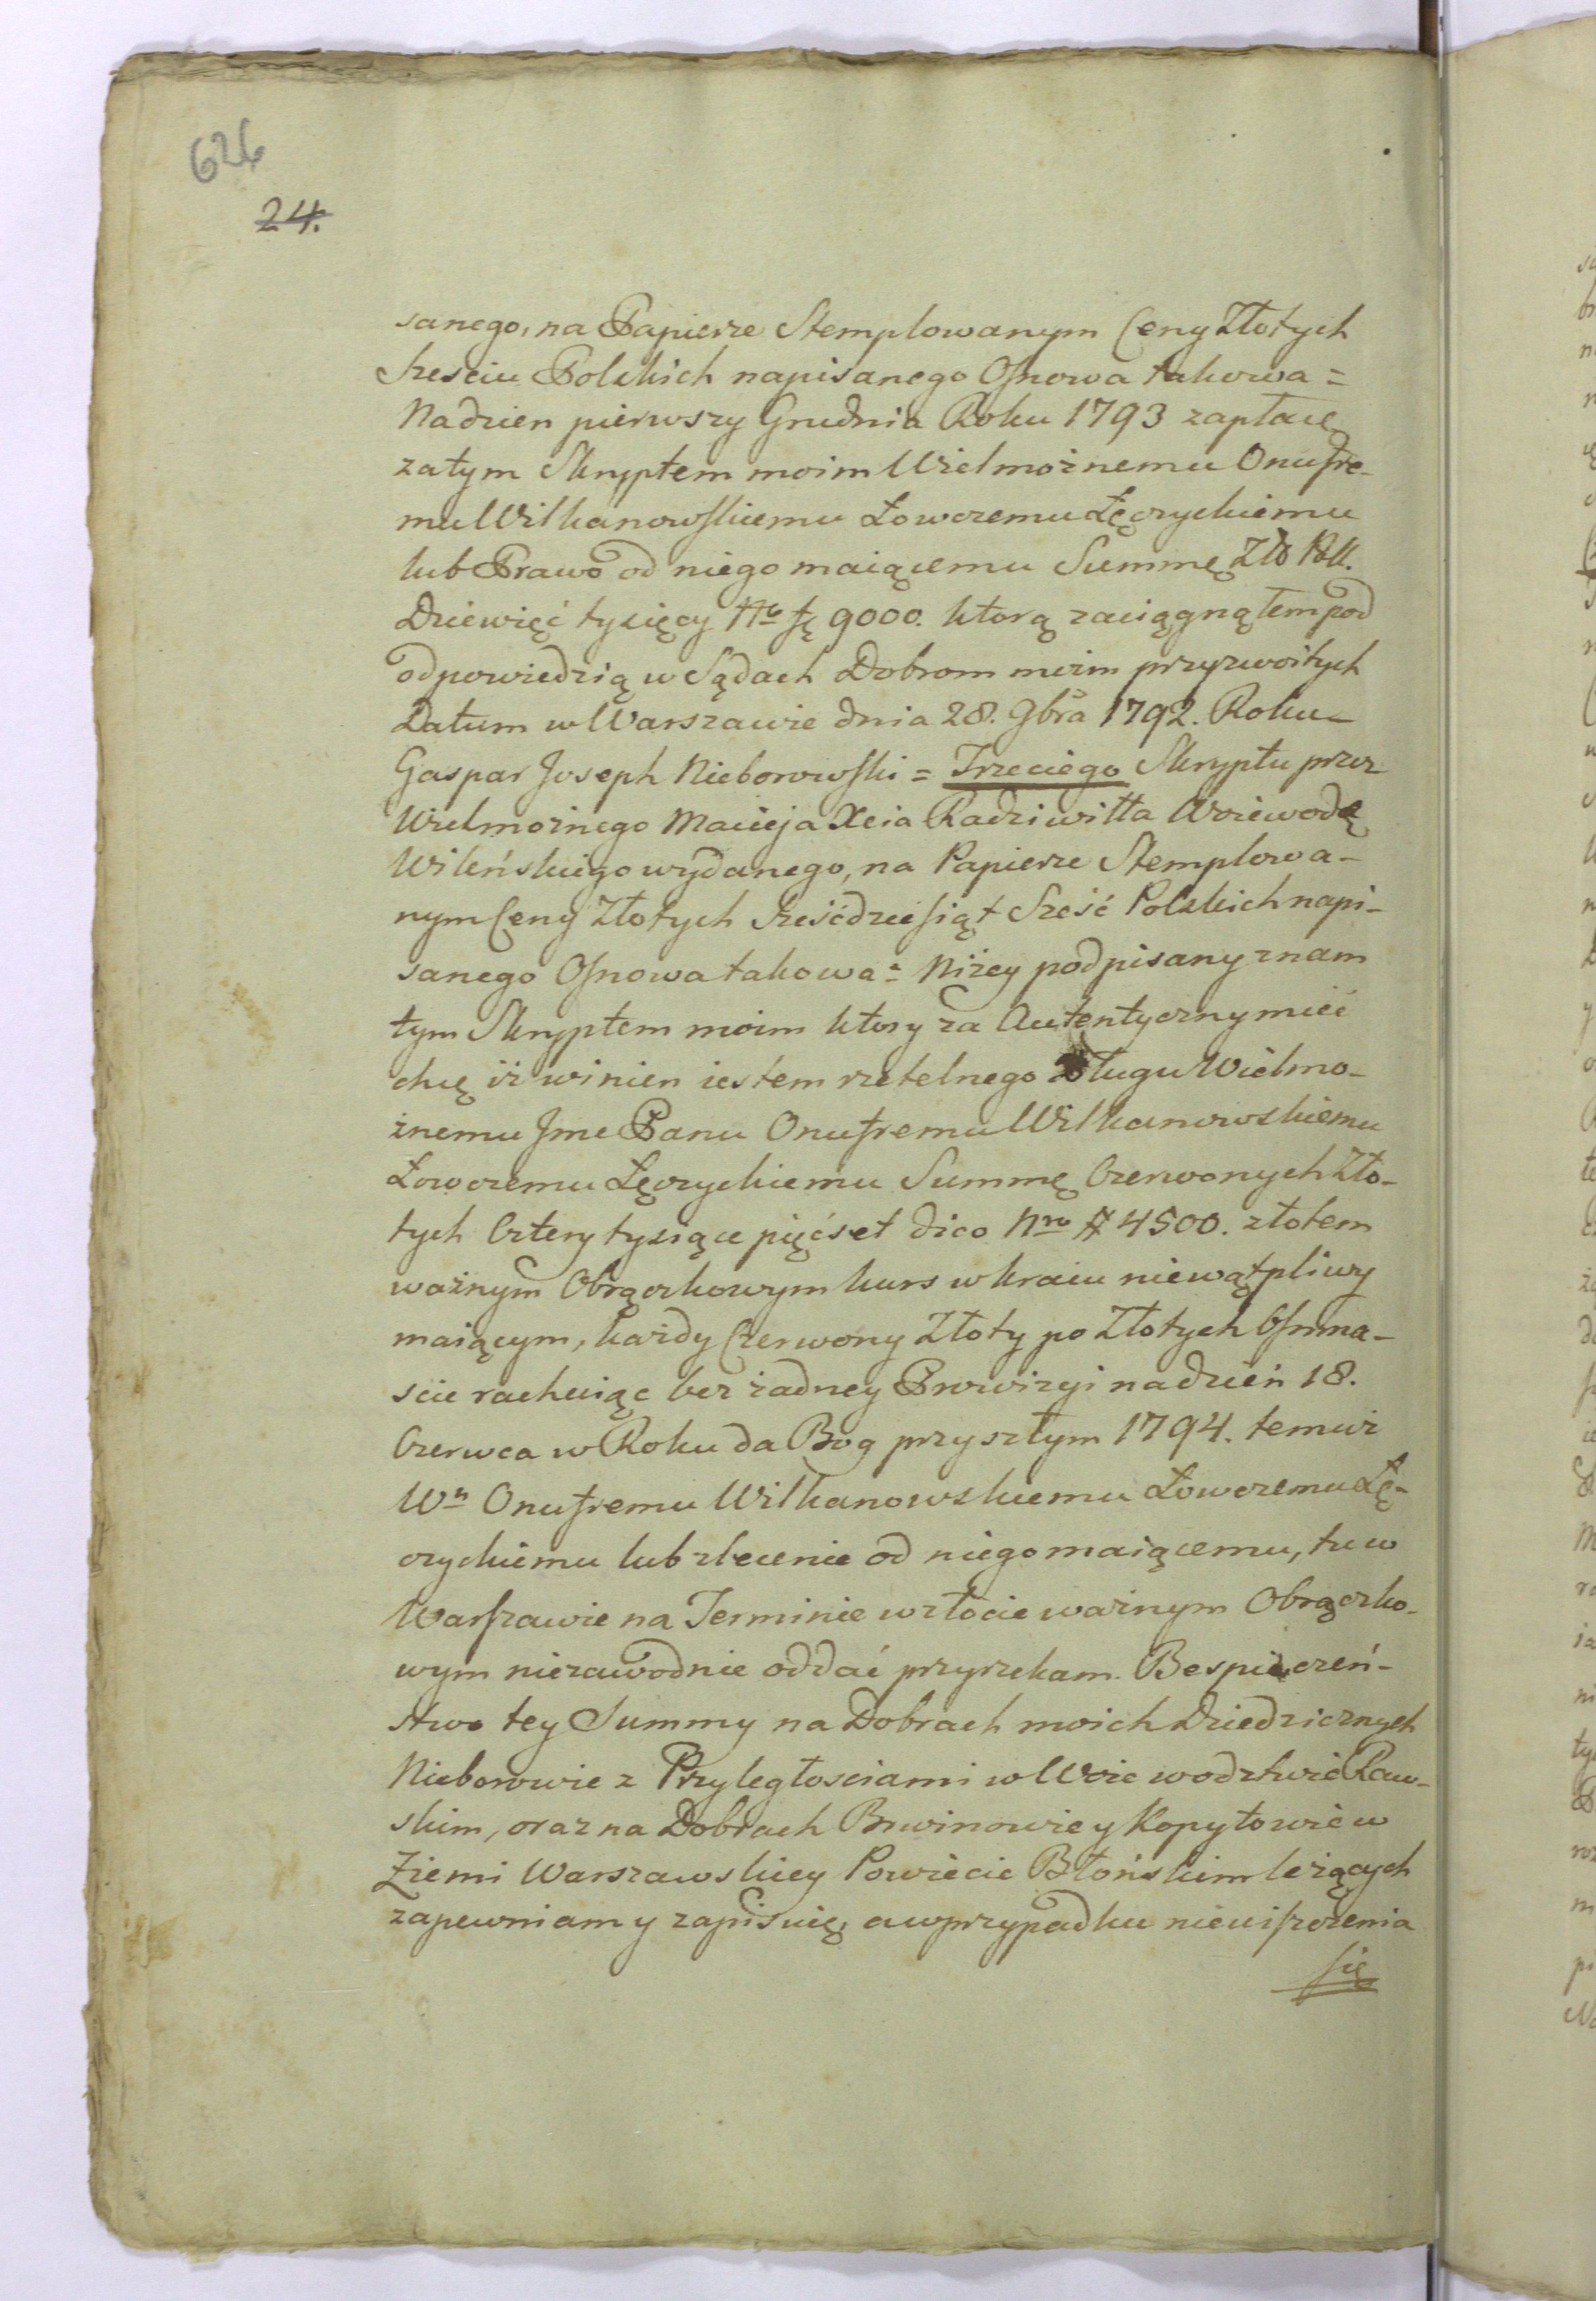 626
24.
sanego, na Papierze Stemplowanym Ceny Złotych
Sześciu Polskich napisanego Osnowa takowa =
Na dzien pierwszy Grudnia Roku 1793 zapłacę
za tym Skryptem moim Wielmożnemu Onufre-
mu Wilkanowskiemu Łowczemu Łęczyckiemu
lub Prawo od niego maiącemu Summę Zło Poll.
Dziewięć tysięcy Nro fl 9000. ktorą zaciągnąłem pod
odpowiedzią w Sądach Dobrom moim przyzwoitych
Datum w Warszawie dnia 28. 9bra 1792. Roku
Gaspar Joseph Nieborowski = Trzeciego Skryptu przez
Wielmożnego Macieja Xcia Radziwiłła Woiewodę
Wileńskiego wydanego, na Papierze Stemplowa-
nym Ceny Złotych sześćdziesiąt Sześć Polskich napi-
sanego Osnowa takowa = Niżey podpisany znam
tym Skryptem moim ktory za Autentyczny mieć
chcę iż winien iestem rzetelnego Długu Wielmo-
żnemu Jme Panu Onufremu Wilkanowskiemu
Łowczemu Łęczyckiemu Summę Czerwonych Zło-
tych Cztery tysiące pięćset dico Nro # 4500. złotem
ważnym Obrączkowym kurs w kraiu niewątpliwy
maiącym, każdy Czerwony Złoty po Złotych Osmna-
scie rachuiąc bez żadney Prowizyi na dzień 18.
Czerwca w Roku da Bog przyszłym 1794. temuż
Wn Onufremu Wilkanowskiemu Łowczemu Łę-
czyckiemu lub zlecenie od niego maiącemu, tu w
Warszawie na Terminie w złocie ważnym Obrączko-
wym niezawodnie oddać przyrzekam. Bespieczeń-
stwo tey Summy na Dobrach moich Dziedzicznych
Nieborowie z Przyległosciami w Woiewodztwie Raw-
skim, oraz na Dobrach Brwinowie y Kopytowie w
Ziemi Warszawskiey Powiecie Błońskim leżących
zapewniam y zapisuię, a w przypadku nieuiszczenia
się